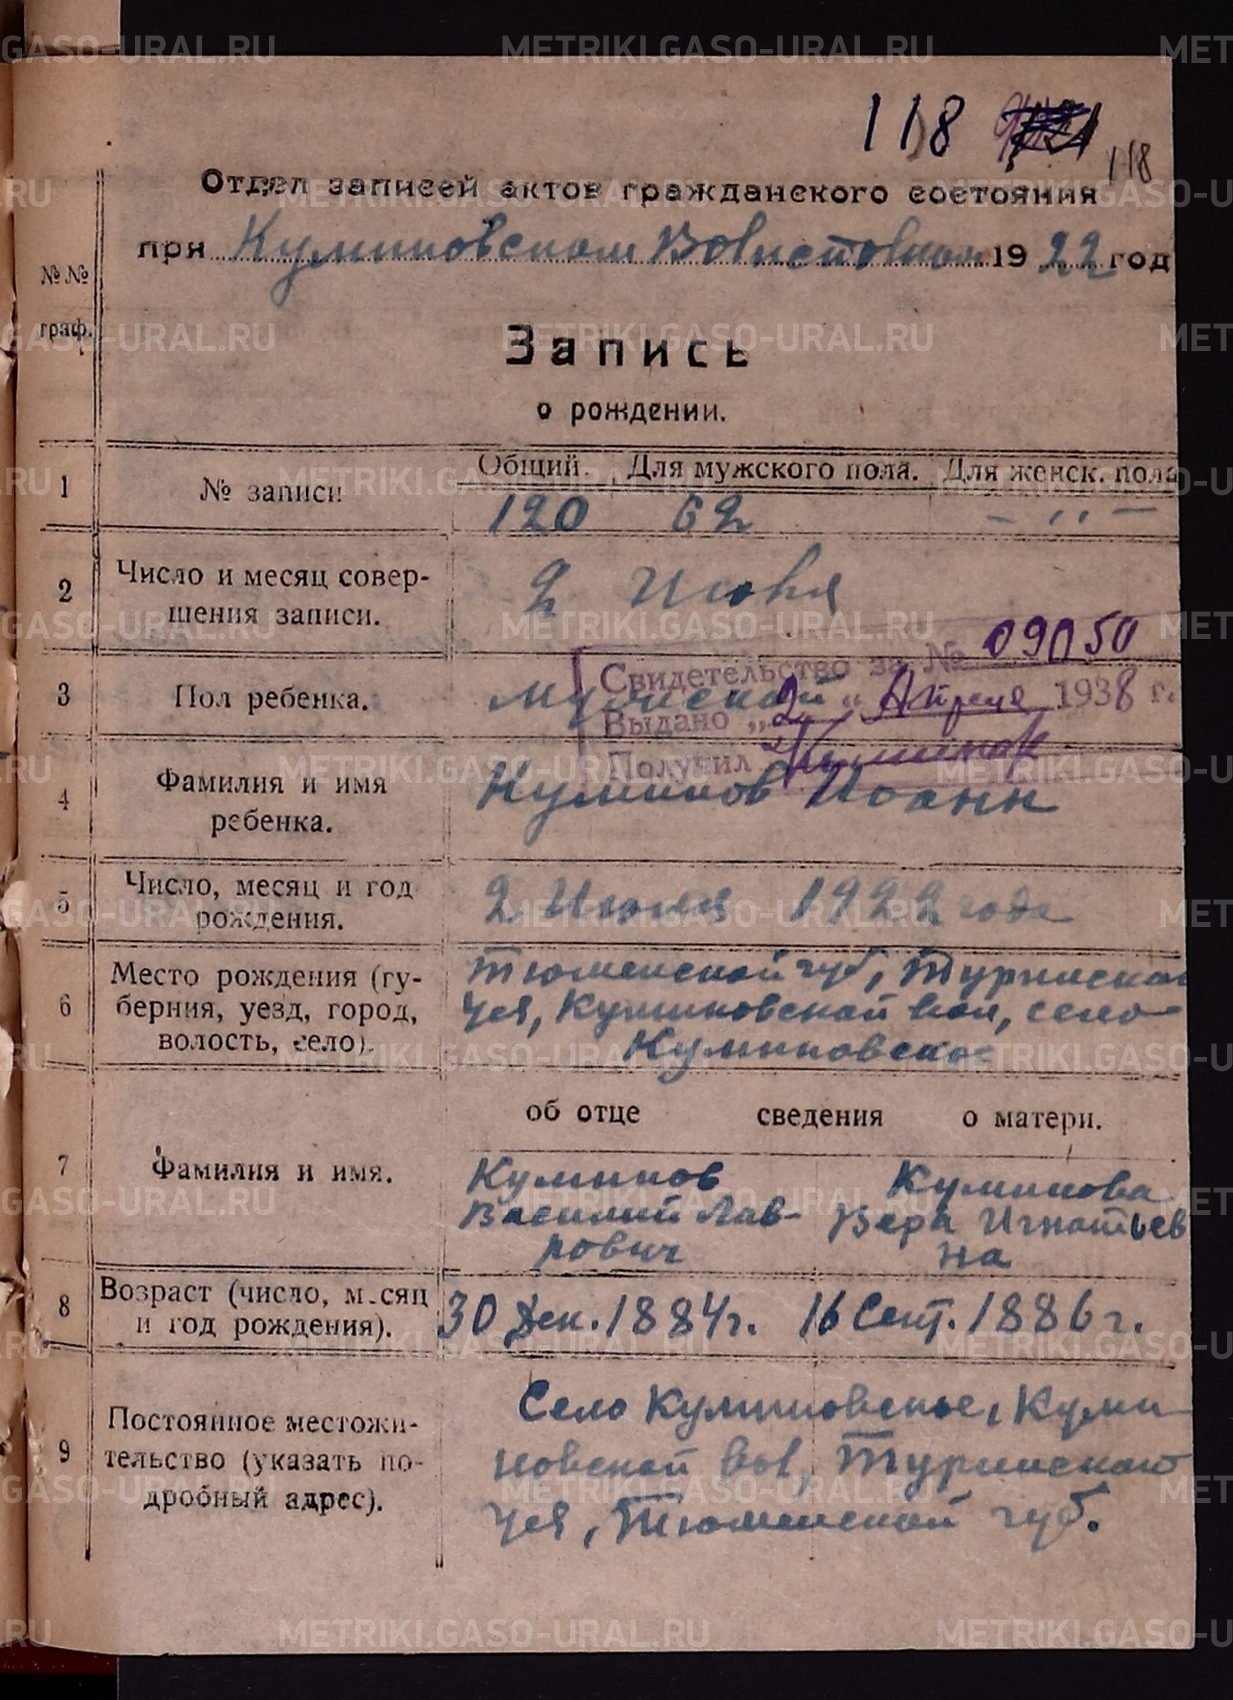 118
118
Отдел записей актов гражданского состояния
при Куминовском Волисполком 1922 год
№№ граф.
Запись
о рождении.
Общий. Для мужского пола. Для женск. пола
1 № записи 120 62 - ,, -
2 Число и месяц совер-
шения записи. 2 Июня
Свидетельство за № 09050
3 Пол ребенка. мужской
Выдано „2" Апреля 1938 г.
Получил
4 Фамилия и имя
ребенка. Куминов Иоанн
5 Число, месяц и год
рождения. 2 Июня 1922 года
6 Место рождения (гу-
берния, уезд, город,
волость, село).
Тюменской губ, Туринского
уез, Куминовской вол, село
Куминовское
об отце сведения о матери.
7 Фамилия и имя.
Куминов Куминова
Василий Лав- Вера Игнатьев
рович на
8 Возраст (число, месяц
и год рождения). 30 Дек. 1884г. 16 Сент. 1886г.
9 Постоянное местожи-
тельство (указать по-
дробный адрес).
Село Куминовское, Куми
новской вол, Туринского
уез, Тюменской губ.
METRIKI.GASO-URAL.RU